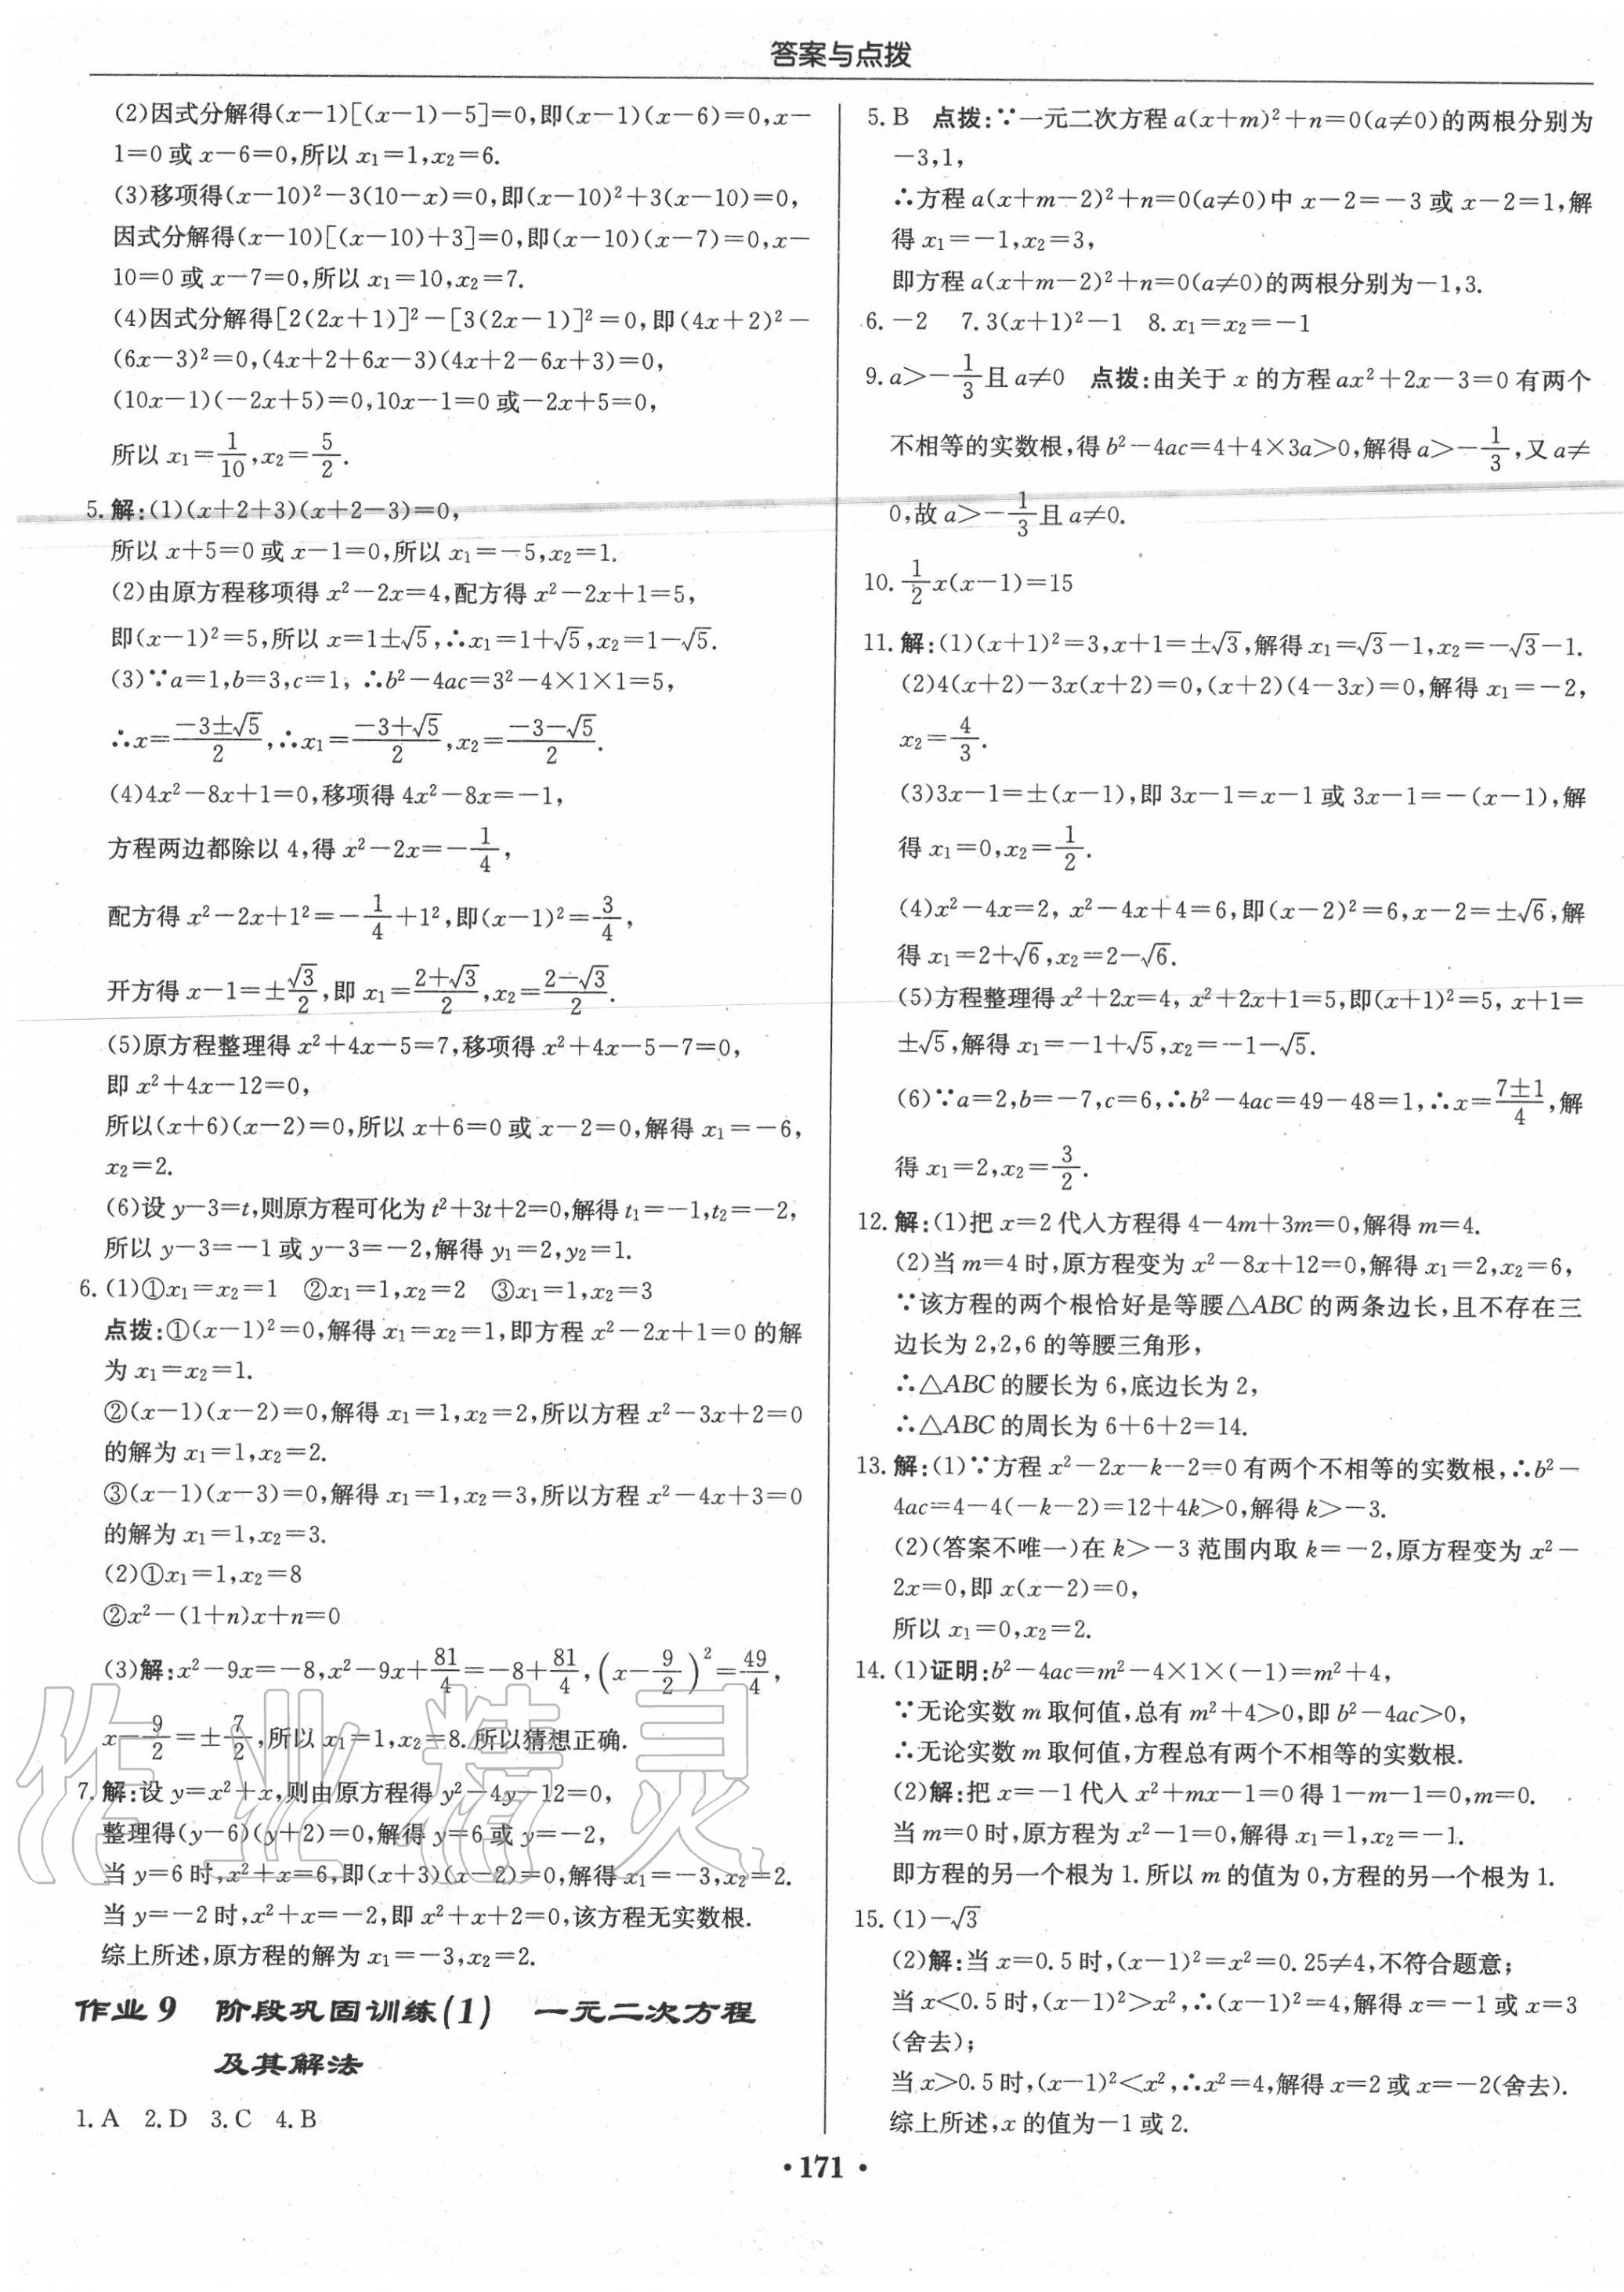 答案与点拨
(2)因式分解得(x－1)[(x－1)－5]＝0,即(x－1)(x－6)＝0,x－
1＝0或x－6＝0,所以x₁＝1,x₂＝6.
(3)移项得(x－10)²－3(10－x)＝0,即(x－10)²＋3(x－10)＝0,
因式分解得(x－10)[(x－10)＋3]＝0,即(x－10)(x－7)＝0,x－
10＝0或x－7＝0,所以x₁＝10,x₂＝7.
(4)因式分解得[2(2x＋1)]²－[3(2x－1)]²＝0,即(4x＋2)²－
(6x－3)²＝0,(4x＋2＋6x－3)(4x＋2－6x＋3)＝0,
(10x－1)(－2x＋5)＝0,10x－1＝0或－2x＋5＝0,
所以x₁＝1/10,x₂＝5/2.
5.解:(1)(x＋2＋3)(x＋2－3)＝0,
所以x＋5＝0或x－1＝0,所以x₁＝－5,x₂＝1.
(2)由原方程移项得x²－2x＝4,配方得x²－2x＋1＝5,
即(x－1)²＝5,所以x＝1±√5,∴x₁＝1＋√5,x₂＝1－√5.
(3)∵a＝1,b＝3,c＝1, ∴b²－4ac＝3²－4×1×1＝5,
∴x＝(－3±√5)/2,∴x₁＝(－3＋√5)/2,x₂＝(－3－√5)/2.
(4)4x²－8x＋1＝0,移项得4x²－8x＝－1,
方程两边都除以4,得x²－2x＝－1/4,
配方得x²－2x＋1²＝－1/4＋1²,即(x－1)²＝3/4,
开方得x－1＝±√3/2,即x₁＝(2＋√3)/2,x₂＝(2－√3)/2.
(5)原方程整理得x²＋4x－5＝7,移项得x²＋4x－5－7＝0,
即x²＋4x－12＝0,
所以(x＋6)(x－2)＝0,所以x＋6＝0或x－2＝0,解得x₁＝－6,
x₂＝2.
(6)设y－3＝t,则原方程可化为t²＋3t＋2＝0,解得t₁＝－1,t₂＝－2,
所以y－3＝－1或y－3＝－2,解得y₁＝2,y₂＝1.
6.(1)①x₁＝x₂＝1 ②x₁＝1,x₂＝2 ③x₁＝1,x₂＝3
点拨:①(x－1)²＝0,解得x₁＝x₂＝1,即方程x²－2x＋1＝0的解
为x₁＝x₂＝1.
②(x－1)(x－2)＝0,解得x₁＝1,x₂＝2,所以方程x²－3x＋2＝0
的解为x₁＝1,x₂＝2.
③(x－1)(x－3)＝0,解得x₁＝1,x₂＝3,所以方程x²－4x＋3＝0
的解为x₁＝1,x₂＝3.
(2)①x₁＝1,x₂＝8
②x²－(1＋n)x＋n＝0
(3)解:x²－9x＝－8,x²－9x＋81/4＝－8＋81/4,(x－9/2)²＝49/4,
x－9/2＝±7/2,所以x₁＝1,x₂＝8.所以猜想正确.
7.解:设y＝x²＋x,则由原方程得y²－4y－12＝0,
整理得(y－6)(y＋2)＝0,解得y＝6或y＝－2,
当y＝6时,x²＋x＝6,即(x＋3)(x－2)＝0,解得x₁＝－3,x₂＝2.
当y＝－2时,x²＋x＝－2,即x²＋x＋2＝0,该方程无实数根.
综上所述,原方程的解为x₁＝－3,x₂＝2.
作业9 阶段巩固训练(1) 一元二次方程
及其解法
1.A 2.D 3.C 4.B
5.B 点拨:∵一元二次方程a(x＋m)²＋n＝0(a≠0)的两根分别为
－3,1,
∴方程a(x＋m－2)²＋n＝0(a≠0)中x－2＝－3或x－2＝1,解
得x₁＝－1,x₂＝3,
即方程a(x＋m－2)²＋n＝0(a≠0)的两根分别为－1,3.
6.－2 7.3(x＋1)²－1 8.x₁＝x₂＝－1
9.a＞－1/3且a≠0 点拨:由关于x的方程ax²＋2x－3＝0有两个
不相等的实数根,得b²－4ac＝4＋4×3a＞0,解得a＞－1/3,又a≠
0,故a＞－1/3且a≠0.
10.1/2x(x－1)＝15
11.解:(1)(x＋1)²＝3,x＋1＝±√3,解得x₁＝√3－1,x₂＝－√3－1.
(2)4(x＋2)－3x(x＋2)＝0,(x＋2)(4－3x)＝0,解得x₁＝－2,
x₂＝4/3.
(3)3x－1＝±(x－1),即3x－1＝x－1或3x－1＝－(x－1),解
得x₁＝0,x₂＝1/2.
(4)x²－4x＝2, x²－4x＋4＝6,即(x－2)²＝6,x－2＝±√6,解
得x₁＝2＋√6,x₂＝2－√6.
(5)方程整理得x²＋2x＝4, x²＋2x＋1＝5,即(x＋1)²＝5, x＋1＝
±√5,解得x₁＝－1＋√5,x₂＝－1－√5.
(6)∵a＝2,b＝－7,c＝6,∴b²－4ac＝49－48＝1,∴x＝(7±1)/4,解
得x₁＝2,x₂＝3/2.
12.解:(1)把x＝2代入方程得4－4m＋3m＝0,解得m＝4.
(2)当m＝4时,原方程变为x²－8x＋12＝0,解得x₁＝2,x₂＝6,
∵该方程的两个根恰好是等腰△ABC的两条边长,且不存在三
边长为2,2,6的等腰三角形,
∴△ABC的腰长为6,底边长为2,
∴△ABC的周长为6＋6＋2＝14.
13.解:(1)∵方程x²－2x－k－2＝0有两个不相等的实数根,∴b²－
4ac＝4－4(－k－2)＝12＋4k＞0,解得k＞－3.
(2)(答案不唯一)在k＞－3范围内取k＝－2,原方程变为x²－
2x＝0,即x(x－2)＝0,
所以x₁＝0,x₂＝2.
14.(1)证明:b²－4ac＝m²－4×1×(－1)＝m²＋4,
∵无论实数m取何值,总有m²＋4＞0,即b²－4ac＞0,
∴无论实数m取何值,方程总有两个不相等的实数根.
(2)解:把x＝－1代入x²＋mx－1＝0得1－m－1＝0,m＝0.
当m＝0时,原方程为x²－1＝0,解得x₁＝1,x₂＝－1.
即方程的另一个根为1.所以m的值为0,方程的另一个根为1.
15.(1)－√3
(2)解:当x＝0.5时,(x－1)²＝x²＝0.25≠4,不符合题意;
当x＜0.5时,(x－1)²＞x²,∴(x－1)²＝4,解得x＝－1或x＝3
(舍去);
当x＞0.5时,(x－1)²＜x²,∴x²＝4,解得x＝2或x＝－2(舍去).
综上所述,x的值为－1或2.
作业精灵
•171•